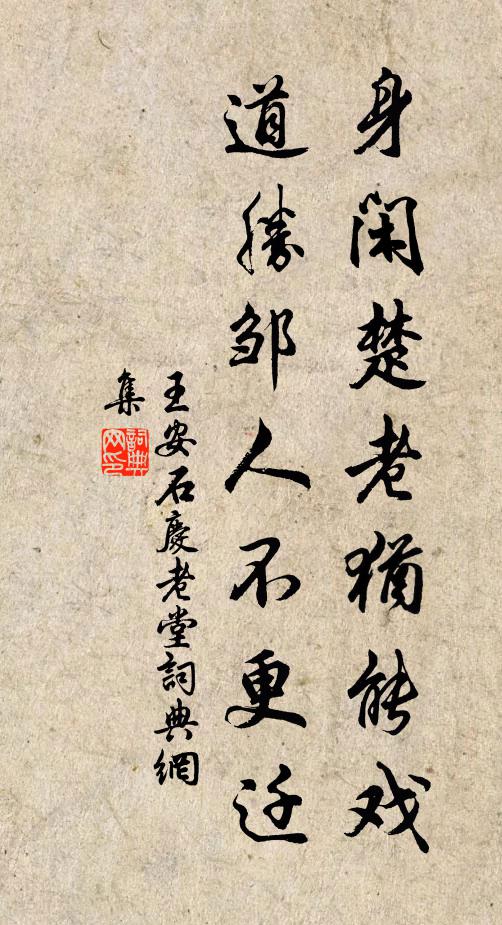 身闲楚老犹能戏
道勝邹人不更迁
王安石慶老堂詞典網
集
詞典
网印